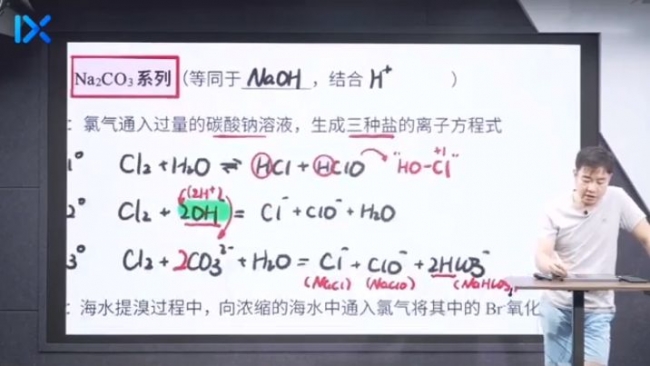 Na₂CO₃系列 (等同于 NaOH ，结合 H⁺ )
：氯气通入过量的碳酸钠溶液，生成三种盐的离子方程式
1° Cl₂ + H₂O ⇌ HCl + HClO "HO-Cl" +1
(2H⁺)
2° Cl₂ + 2OH⁻ = Cl⁻ + ClO⁻ + H₂O
3° Cl₂ + 2CO₃²⁻ + H₂O = Cl⁻ + ClO⁻ + 2HCO₃⁻
(NaCl) (NaClO) (NaHCO₃)
：海水提溴过程中，向浓缩的海水中通入氯气将其中的 Br⁻氧化